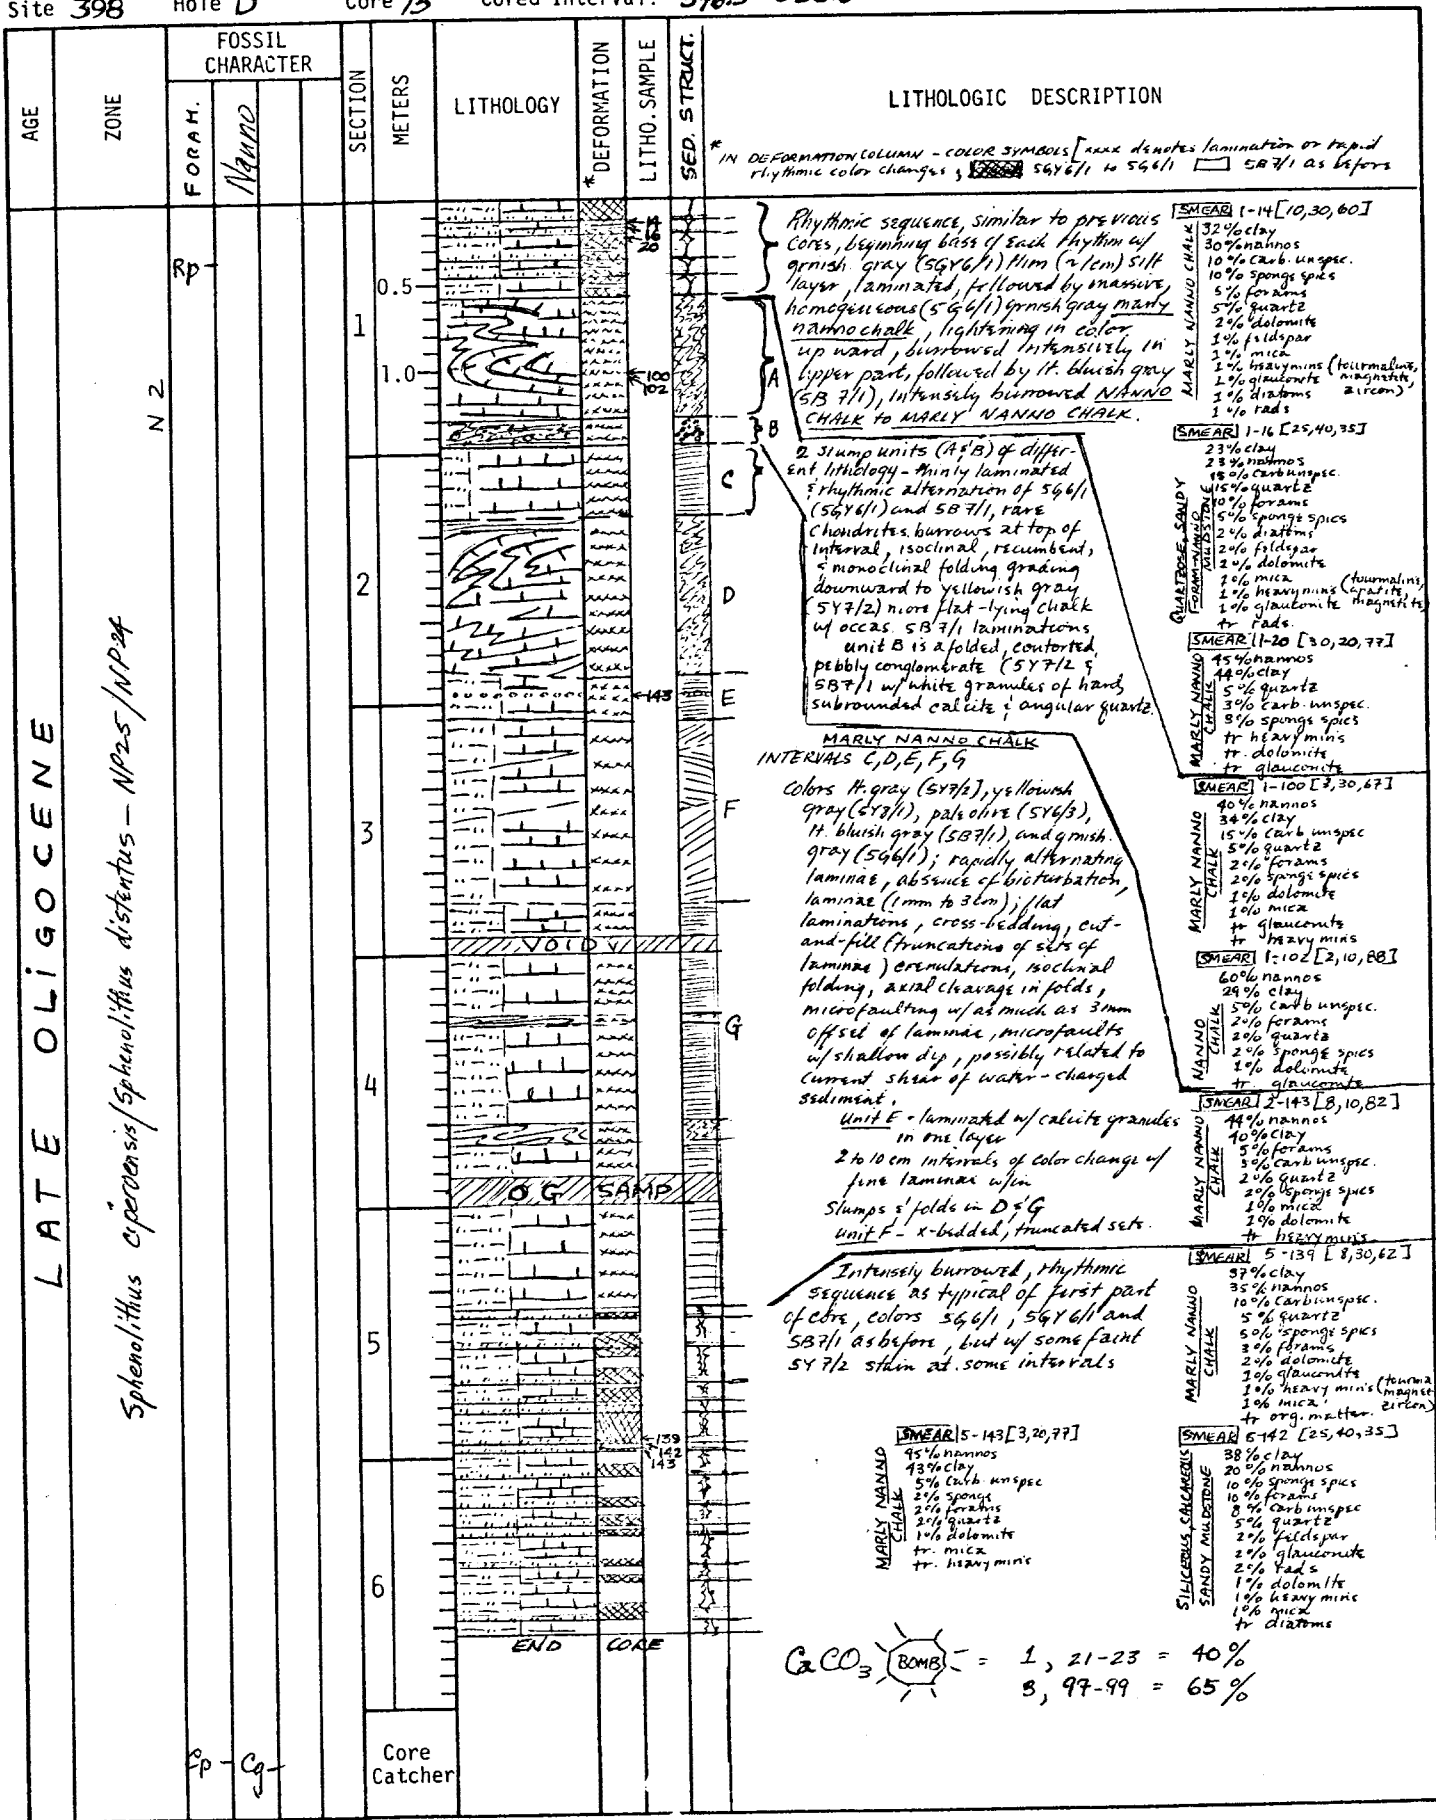 Site 398 Hole D Core 13 Cored Interval:
AGE
ZONE
FOSSIL
CHARACTER
FORAM.
Nanno
SECTION
METERS
LITHOLOGY
* DEFORMATION
LITHO. SAMPLE
SED. STRUCT.
LITHOLOGIC DESCRIPTION
* IN DEFORMATION COLUMN - COLOR SYMBOLS [xxxx denotes lamination or rapid
rhythmic color changes, 5GY6/1 to 5G6/1 5B7/1 as before
LATE OLIGOCENE
N 2
Sphenolithus ciperoensis/Sphenolithus distentus - NP25/NP24
Rp
Cp
Cg
0.5
1.0
1
2
3
4
5
6
Core
Catcher
14
16
20
100
102
143
139
142
143
VOID
OG SAMP
END CORE
A
B
C
D
E
F
G
Rhythmic sequence, similar to previous
cores, beginning base of each rhythm w/
grnish. gray (5GY6/1) thin (~1cm) silt
layer, laminated, followed by massive,
homogeneous (5G6/1) grnish gray marly
nanno chalk, lightening in color
upward, burrowed intensively in
upper part, followed by lt. bluish gray
(5B 7/1), intensely burrowed NANNO
CHALK TO MARLY NANNO CHALK.
2 Slump units (A & B) of differ-
ent lithology - thinly laminated
& rhythmic alternation of 5G6/1
(5GY6/1) and 5B 7/1, rare
Chondrites burrows at top of
interval, isoclinal, recumbent,
& monoclinal folding grading
downward to yellowish gray
(5Y7/2) more flat-lying chalk
w/ occas. 5B7/1 laminations
unit B is a folded, contorted,
pebbly conglomerate (5Y7/2 &
5B7/1 w/ white granules of hard,
subrounded calcite & angular quartz.
MARLY NANNO CHALK
INTERVALS C,D,E,F,G
Colors lt. gray (5Y7/2), yellowish
gray (5Y8/1), pale olive (5Y6/3),
lt. bluish gray (5B7/1), and grnish.
gray (5G6/1); rapidly alternating
laminae, absence of bioturbation,
laminae (1mm to 3cm); flat
laminations, cross-bedding, cut-
and-fill (truncations of sets of
laminae) crenulations, isoclinal
folding, axial cleavage in folds,
microfaulting w/ as much as 3mm
offset of laminae, microfaults
w/ shallow dip, possibly related to
current shear of water-charged
sediment.
Unit E - laminated w/ calcite granules
in one layer
2 to 10 cm intervals of color change w/
fine laminae w/in
Slumps & folds in D & G
Unit F - x-bedded, truncated sets.
Intensely burrowed, rhythmic
sequence as typical of first part
of core, colors 5G6/1, 5GY6/1 and
5B7/1 as before, but w/ some faint
5Y 7/2 stain at some intervals
SMEAR 1-14 [10,30,60]
MARLY NANNO CHALK
32% clay
30% nannos
10% carb. unspec.
10% sponge spics
5% forams
5% quartz
2% dolomite
1% feldspar
1% mica
1% heavy mins (tourmaline,
magnetite,
zircon)
1% glauconite
1% diatoms
1% rads
SMEAR 1-16 [25,40,35]
QUARTZOSE, SANDY
FORAM-NANNO
MUDSTONE
23% clay
23% nannos
15% carb unspec.
15% quartz
10% forams
5% sponge spics
2% diatoms
2% feldspar
2% dolomite
1% mica
1% heavy mins (tourmaline,
apatite,
magnetite)
1% glauconite
tr rads.
SMEAR 1-20 [30,20,77]
MARLY NANNO
CHALK
45% nannos
44% clay
5% quartz
3% carb. unspec.
3% sponge spics
tr heavy mins
tr. dolomite
tr. glauconite
SMEAR 1-100 [3,30,67]
MARLY NANNO
CHALK
40% nannos
34% clay
15% carb unspec
5% quartz
2% forams
2% sponge spics
1% dolomite
1% mica
tr glauconite
tr heavy mins
SMEAR 1-102 [2,10,88]
NANNO
CHALK
60% nannos
29% clay
5% carb unspec.
2% forams
2% quartz
2% sponge spics
1% dolomite
tr. glauconite
SMEAR 2-143 [8,10,82]
MARLY NANNO
CHALK
44% nannos
40% clay
5% forams
5% carb unspec.
2% quartz
2% sponge spics
1% mica
1% dolomite
tr heavy mins
SMEAR 5-139 [8,30,62]
MARLY NANNO
CHALK
37% clay
35% nannos
10% carb unspec.
5% quartz
5% sponge spics
3% forams
2% dolomite
1% glauconite
1% heavy mins (tourma
magnet
zircon)
1% mica
tr org. matter.
SMEAR 5-143 [3,20,77]
MARLY NANNO
CHALK
45% nannos
43% clay
5% carb. unspec
2% sponge
2% forams
2% quartz
1% dolomite
tr. mica
tr. heavy mins
SMEAR 5-142 [25,40,35]
SILICEOUS, CALCAREOUS
SANDY MUDSTONE
38% clay
20% nannos
10% sponge spics
10% forams
8% carb unspec
5% quartz
2% feldspar
2% glauconite
2% rads
1% dolomite
1% heavy mins
1% mica
tr diatoms
CaCO3 BOMB = 1, 21-23 = 40%
3, 97-99 = 65%